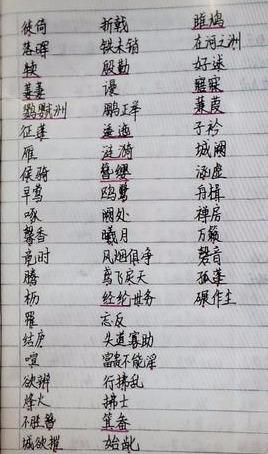 徙倚 折戟 雎鸠
落晖 铁未销 在河之洲
犊 殷勤 好逑
萋萋 谩 寤寐
鹦鹉洲 鹏正举 蒹葭
征蓬 子衿
雁 涟漪 城阙
候骑 簪缨 涵虚
早莺 鸥鹭 舟楫
啄 阙处 禅房
馨香 曦月 万籁
竟时 风烟俱净 磬音
腾 鸢飞戾天 孤蓬
枥 经纶世务 碾作尘
罹 忘反
结庐 夫道寡助
喧 富贵不能淫
欲辨 行拂乱
烽火 拂士
不胜簪 箕畚
城欲摧 始龀